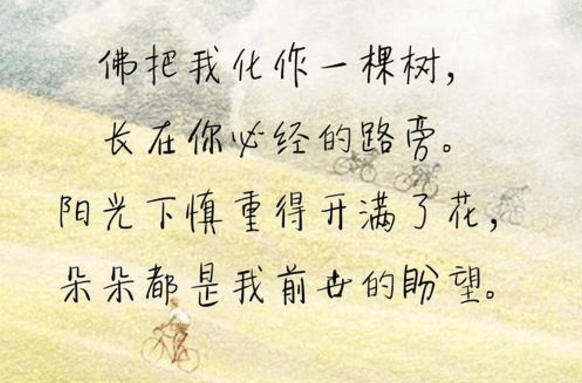 佛把我化作一棵树，
长在你必经的路旁。
阳光下慎重得开满了花，
朵朵都是我前世的盼望。